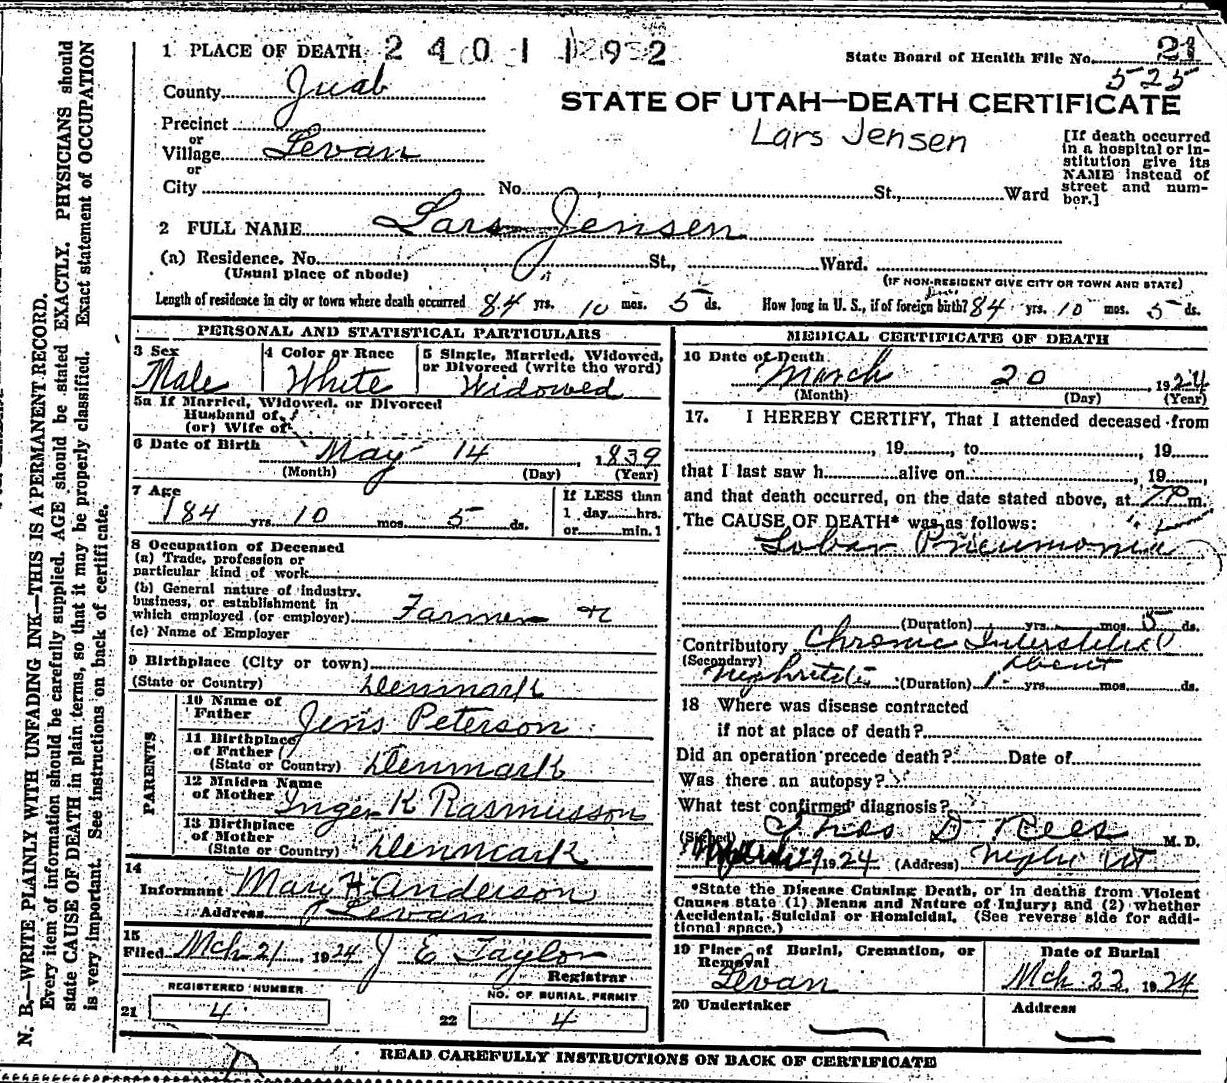 1 PLACE OF DEATH 2 4 0 1 1 9 2
State Board of Health File No. 21
525
County Juab
STATE OF UTAH—DEATH CERTIFICATE
Lars Jensen
Precinct
or
Village Levan
or
City No. St., Ward
[If death occurred
in a hospital or in-
stitution give its
NAME instead of
street and num-
ber.]
2 FULL NAME Lars Jensen
(a) Residence. No. St., Ward.
(Usual place of abode)
(IF NON-RESIDENT GIVE CITY OR TOWN AND STATE)
Length of residence in city or town where death occurred 84 yrs. 10 mos. 5 ds. How long in U. S., if of foreign birth? 84 yrs. 10 mos. 5 ds.
PERSONAL AND STATISTICAL PARTICULARS
3 Sex
Male
4 Color or Race
White
5 Single, Married, Widowed,
or Divorced (write the word)
Widowed
5a If Married, Widowed, or Divorced
Husband of
(or) Wife of
6 Date of Birth May 14, 1839
(Month) (Day) (Year)
7 Age
84 yrs. 10 mos. 5 ds.
If LESS than
1 day hrs.
or min.
8 Occupation of Deceased
(a) Trade, profession or
particular kind of work
(b) General nature of industry,
business, or establishment in
which employed (or employer) Farmer
(c) Name of Employer
9 Birthplace (City or town)
(State or Country) Denmark
PARENTS
10 Name of
Father Jens Peterson
11 Birthplace
of Father
(State or Country) Denmark
12 Maiden Name
of Mother Inger K Rasmusson
13 Birthplace
of Mother
(State or Country) Denmark
14
Informant Mary H Anderson
Address Levan
15
Filed Mch 21 1924 J E Taylor
Registrar
REGISTERED NUMBER
21 4
NO. OF BURIAL PERMIT
22 4
MEDICAL CERTIFICATE OF DEATH
16 Date of Death
March 20, 1924
(Month) (Day) (Year)
17. I HEREBY CERTIFY, That I attended deceased from
, 19 , to , 19
that I last saw h alive on , 19 ,
and that death occurred, on the date stated above, at 7 P m.
The CAUSE OF DEATH* was as follows:
Lobar Pneumonia
(Duration) yrs. mos. 5 ds.
Contributory Chronic Interstitial
(Secondary)
Nephritis (Duration) 1 yrs. mos. ds.
about
18 Where was disease contracted
if not at place of death?
Did an operation precede death? Date of
Was there an autopsy?
What test confirmed diagnosis?
(Signed) Thos D Rees M. D.
1924 (Address) Nephi Ut.
*State the Disease Causing Death, or in deaths from Violent
Causes state (1) Means and Nature of Injury; and (2) whether
Accidental, Suicidal or Homicidal. (See reverse side for addi-
tional space.)
19 Place of Burial, Cremation, or
Removal
Levan
Date of Burial
Mch 22 1924
20 Undertaker
Address
READ CAREFULLY INSTRUCTIONS ON BACK OF CERTIFICATE
N. B.—WRITE PLAINLY WITH UNFADING INK—THIS IS A PERMANENT RECORD.
Every item of information should be carefully supplied. AGE should be stated EXACTLY. PHYSICIANS should
state CAUSE OF DEATH in plain terms, so that it may be properly classified. Exact statement of OCCUPATION
is very important. See instructions on back of certificate.